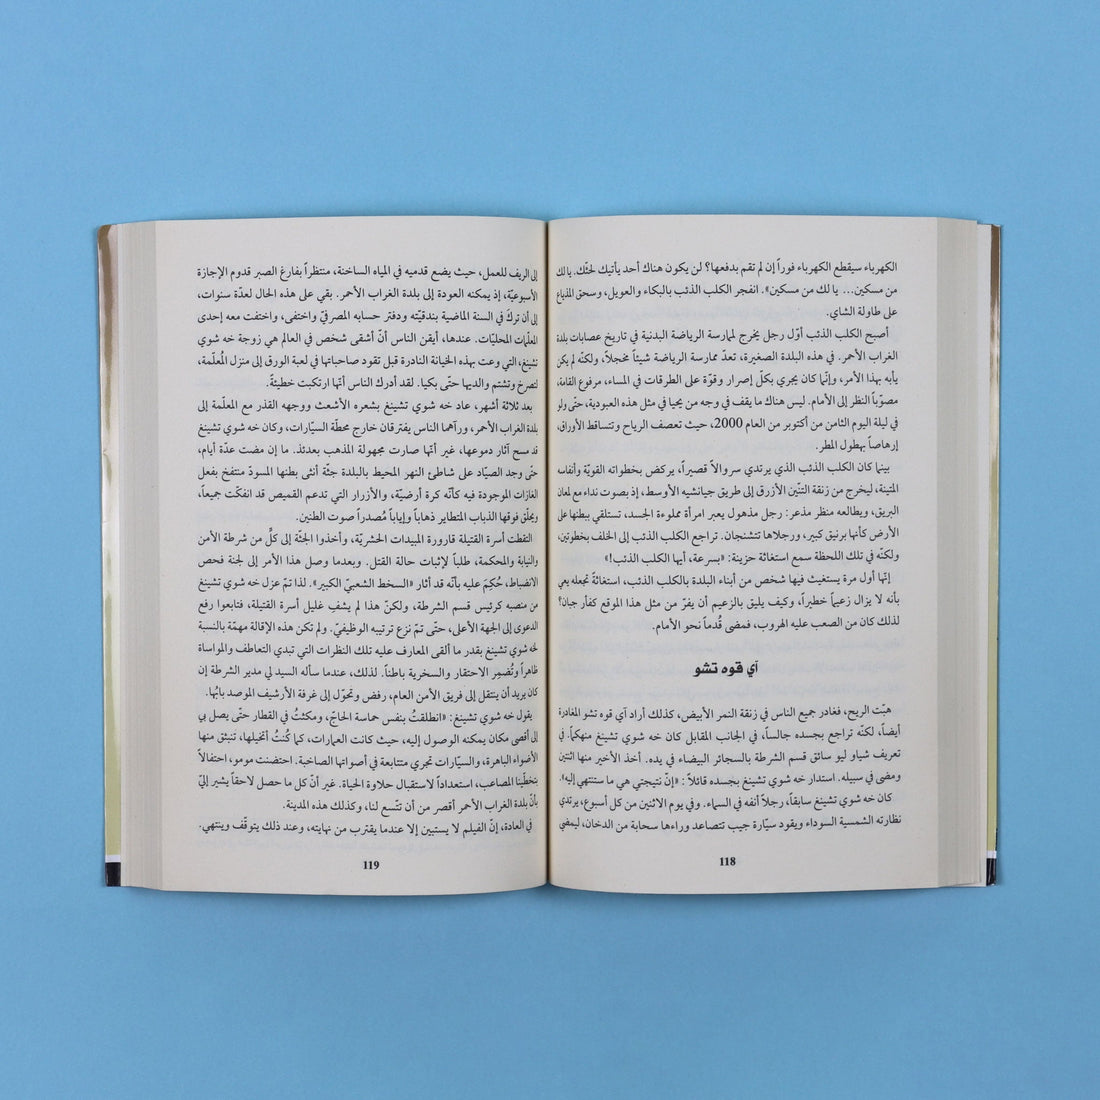 الكهرباء سيقطع الكهرباء فوراً إن لم تقم بدفعها؟ لن يكون هناك أحد يأتيك لحثّك. يا لك
من مسكين... يا لك من مسكين». انفجر الكلب الذئب بالبكاء والعويل، وسحق المذياع
على طاولة الشاي.
أصبح الكلب الذئب أوّل رجل يخرج لممارسة الرياضة البدنية في تاريخ عصابات بلدة
الغراب الأحمر. في هذه البلدة الصغيرة، تعدّ ممارسة الرياضة شيئاً مخجلاً، ولكنّه لم يكن
يأبه بهذا الأمر، وإنّما كان يجري بكلّ إصرار وقوّة على الطرقات في المساء، مرفوع القامة،
مصوّباً النظر إلى الأمام. ليس هناك ما يقف في وجه من يحيا في مثل هذه العبودية، حتّى ولو
في ليلة اليوم الثامن من أكتوبر من العام 2000، حيث تعصف الرياح وتتساقط الأوراق،
إرهاصاً بهطول المطر.
بينما كان الكلب الذئب الذي يرتدي سروالاً قصيراً، يركض بخطواته القويّة وأنفاسه
المتينة، ليخرج من زنقة التنّين الأزرق إلى طريق جيانشيه الأوسط، إذ بصوت نداء مع لمعان
البريق، ويطالعه منظر مذعر: رجل مذهول يعبر امرأة مملوءة الجسد، تستلقي ببطنها على
الأرض كأنها برنيق كبير، ورجلاها تتشنجان. تراجع الكلب الذئب إلى الخلف بخطوتين،
ولكنّه في تلك اللحظة سمع استغاثة حزينة: «بسرعة، أيها الكلب الذئب!»
إنّها أول مرة يستغيث فيها شخص من أبناء البلدة بالكلب الذئب، استغاثةً تجعله يعي
بأنه لا يزال زعيماً خطيراً، وكيف يليق بالزعيم أن يفرّ من مثل هذا الموقع كفأر جبان؟
لذلك كان من الصعب عليه الهروب، فمضى قُدماً نحو الأمام.
آي قوه تشو
هبّت الريح، فغادر جميع الناس في زنقة النمر الأبيض، كذلك أراد آي قوه تشو المغادرة
أيضاً، لكنّه تراجع بجسده جالساً، في الجانب المقابل كان خه شوي تشينغ منهكماً في
تعريف شياو ليو سائق قسم الشرطة بالسجائر البيضاء في يده. أخذ الأخير منها اثنتين
ومضى في سبيله. استدار خه شوي تشينغ بجسده قائلاً: «إنّ نتيجتي هي ما ستنتهي إليه».
كان خه شوي تشينغ سابقاً، رجلاً أنفه في السماء. وفي يوم الاثنين من كل أسبوع، يرتدي
نظارته الشمسية السوداء ويقود سيّارة جيب تتصاعد وراءها سحابة من الدخان، ليمضي
118
إلى الريف للعمل، حيث يضع قدميه في المياه الساخنة، منتظراً بفارغ الصبر قدوم الإجازة
الأسبوعيّة، إذ يمكنه العودة إلى بلدة الغراب الأحمر. بقي على هذه الحال لعدّة سنوات،
إلى أن تركَ في السنة الماضية بندقيّته ودفتر حسابه المصرفيّ واختفى، واختفت معه إحدى
المعلّمات المحليّات. عندها، أيقن الناس أنّ أشقى شخص في العالم هي زوجة خه شوي
تشينغ، التي وعت بهذه الخيانة النادرة قبل تقود صاحباتها في لعبة الورق إلى منزل المُعلّمة،
لتصرخ وتشتم والديها حتّى بكيا. لقد أدرك الناس أنّها ارتكبت خطيئةً.
بعد ثلاثة أشهر، عاد خه شوي تشينغ بشعره الأشعث ووجهه القذر مع المعلّمة إلى
بلدة الغراب الأحمر، ورآهما الناس يفترقان خارج محطّة السيّارات، وكان خه شوي تشينغ
قد مسح آثار دموعها، غير أنّها صارت مجهولة المذهب بعدئذ. ما إن مضت عدّة أيام،
حتّى وجد الصيّاد على شاطئ النهر المحيط بالبلدة جثّة أنثى بطنها المسودّ منتفخ بفعل
الغازات الموجودة فيه كأنّه كرة أرضيّة، والأزرار التي تدعم القميص قد انفكّت جميعاً،
ويحلّق فوقها الذباب المتطاير ذهاباً وإياباً مُصدراً صوت الطنين.
التقطت أسرة القتيلة قارورة المبيدات الحشريّة، وأخذوا الجثّة إلى كلٍّ من شرطة الأمن
والنيابة والمحكمة، طلباً لإثبات حالة القتل. وبعدما وصل هذا الأمر إلى لجنة فحص
الانضباط، حُكِمَ عليه بأنّه قد أثار «السخط الشعبيّ الكبير». لذا تمّ عزل خه شوي تشينغ
من منصبه كرئيس قسم الشرطة، ولكنّ هذا لم يشفِ غليل أسرة القتيلة، فتابعوا رفع
الدعوى إلى الجهة الأعلى، حتّى تمّ نزع ترتيبه الوظيفيّ. ولم تكن هذه الإقالة مهمّة بالنسبة
لخه شوي تشينغ بقدر ما ألقى المعارف عليه تلك النظرات التي تبدي التعاطف والمواساة
ظاهراً وتُضمِر الاحتقار والسخرية باطناً. لذلك، عندما سأله السيد لي مدير الشرطة إن
كان يريد أن ينتقل إلى فريق الأمن العام، رفض وتحوّل إلى غرفة الأرشيف الموصد بابُها.
يقول خه شوي تشينغ: «انطلقتُ بنفس حماسة الحاجّ، ومكثتُ في القطار حتّى يصل بي
إلى أقصى مكان يمكنه الوصول إليه، حيث كانت العمارات، كما كُنتُ أتخيلها، تنبثق منها
الأضواء الباهرة، والسيّارات تجري متتابعة في أصواتها الصاخبة. احتضنت مومو، احتفالاً
بتخطّينا المصاعب، استعداداً لاستقبال حلاوة الحياة. غير أنّ كل ما حصل لاحقاً يشير إليّ
بأنّ بلدة الغراب الأحمر أقصر من أن تتّسع لنا، وكذلك هذه المدينة.
في العادة، إنّ الفيلم لا يستبين إلا عندما يقترب من نهايته، وعند ذلك يتوقّف وينتهي.
119